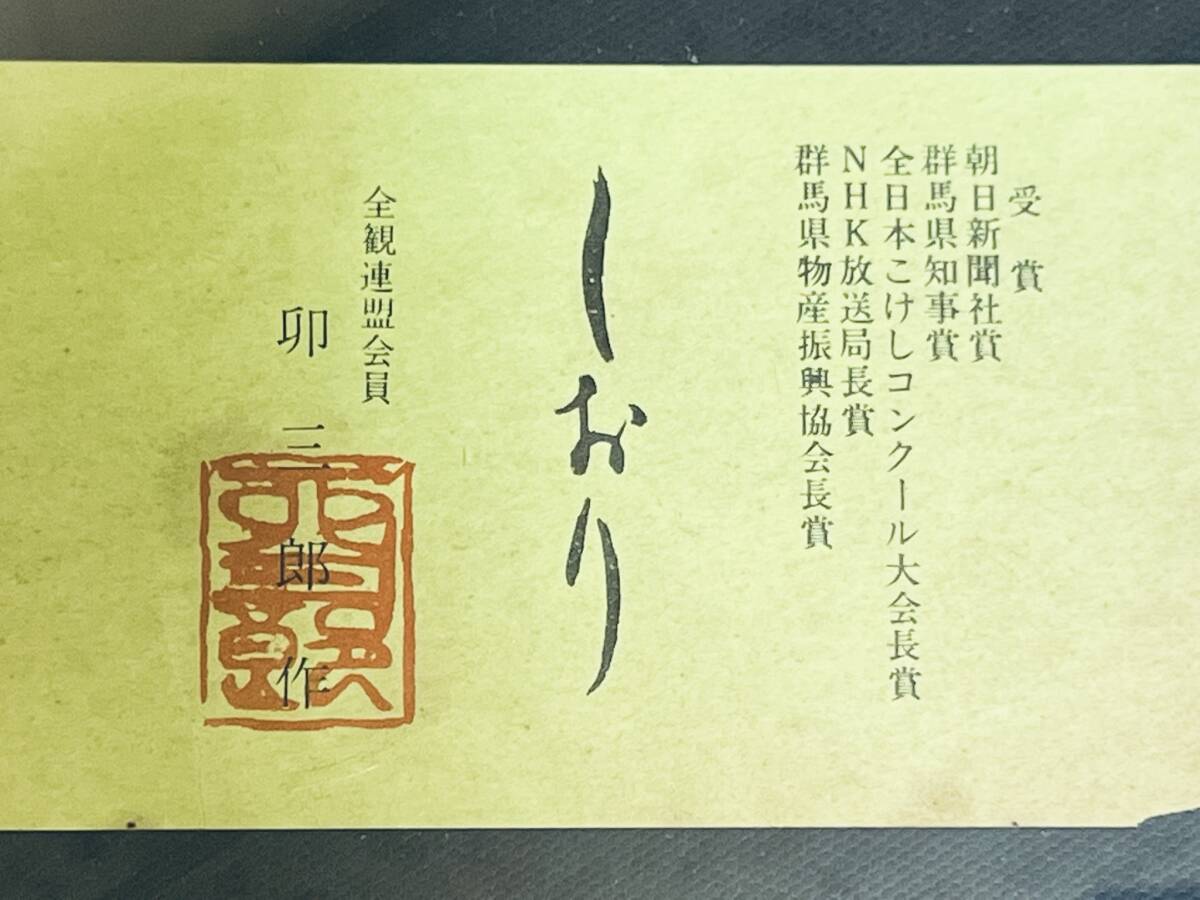 受賞
朝日新聞社賞
群馬県知事賞
全日本こけしコンクール大会長賞
NHK放送局長賞
群馬県物産振興協会長賞
しおり
全観連盟会員
卯三郎作